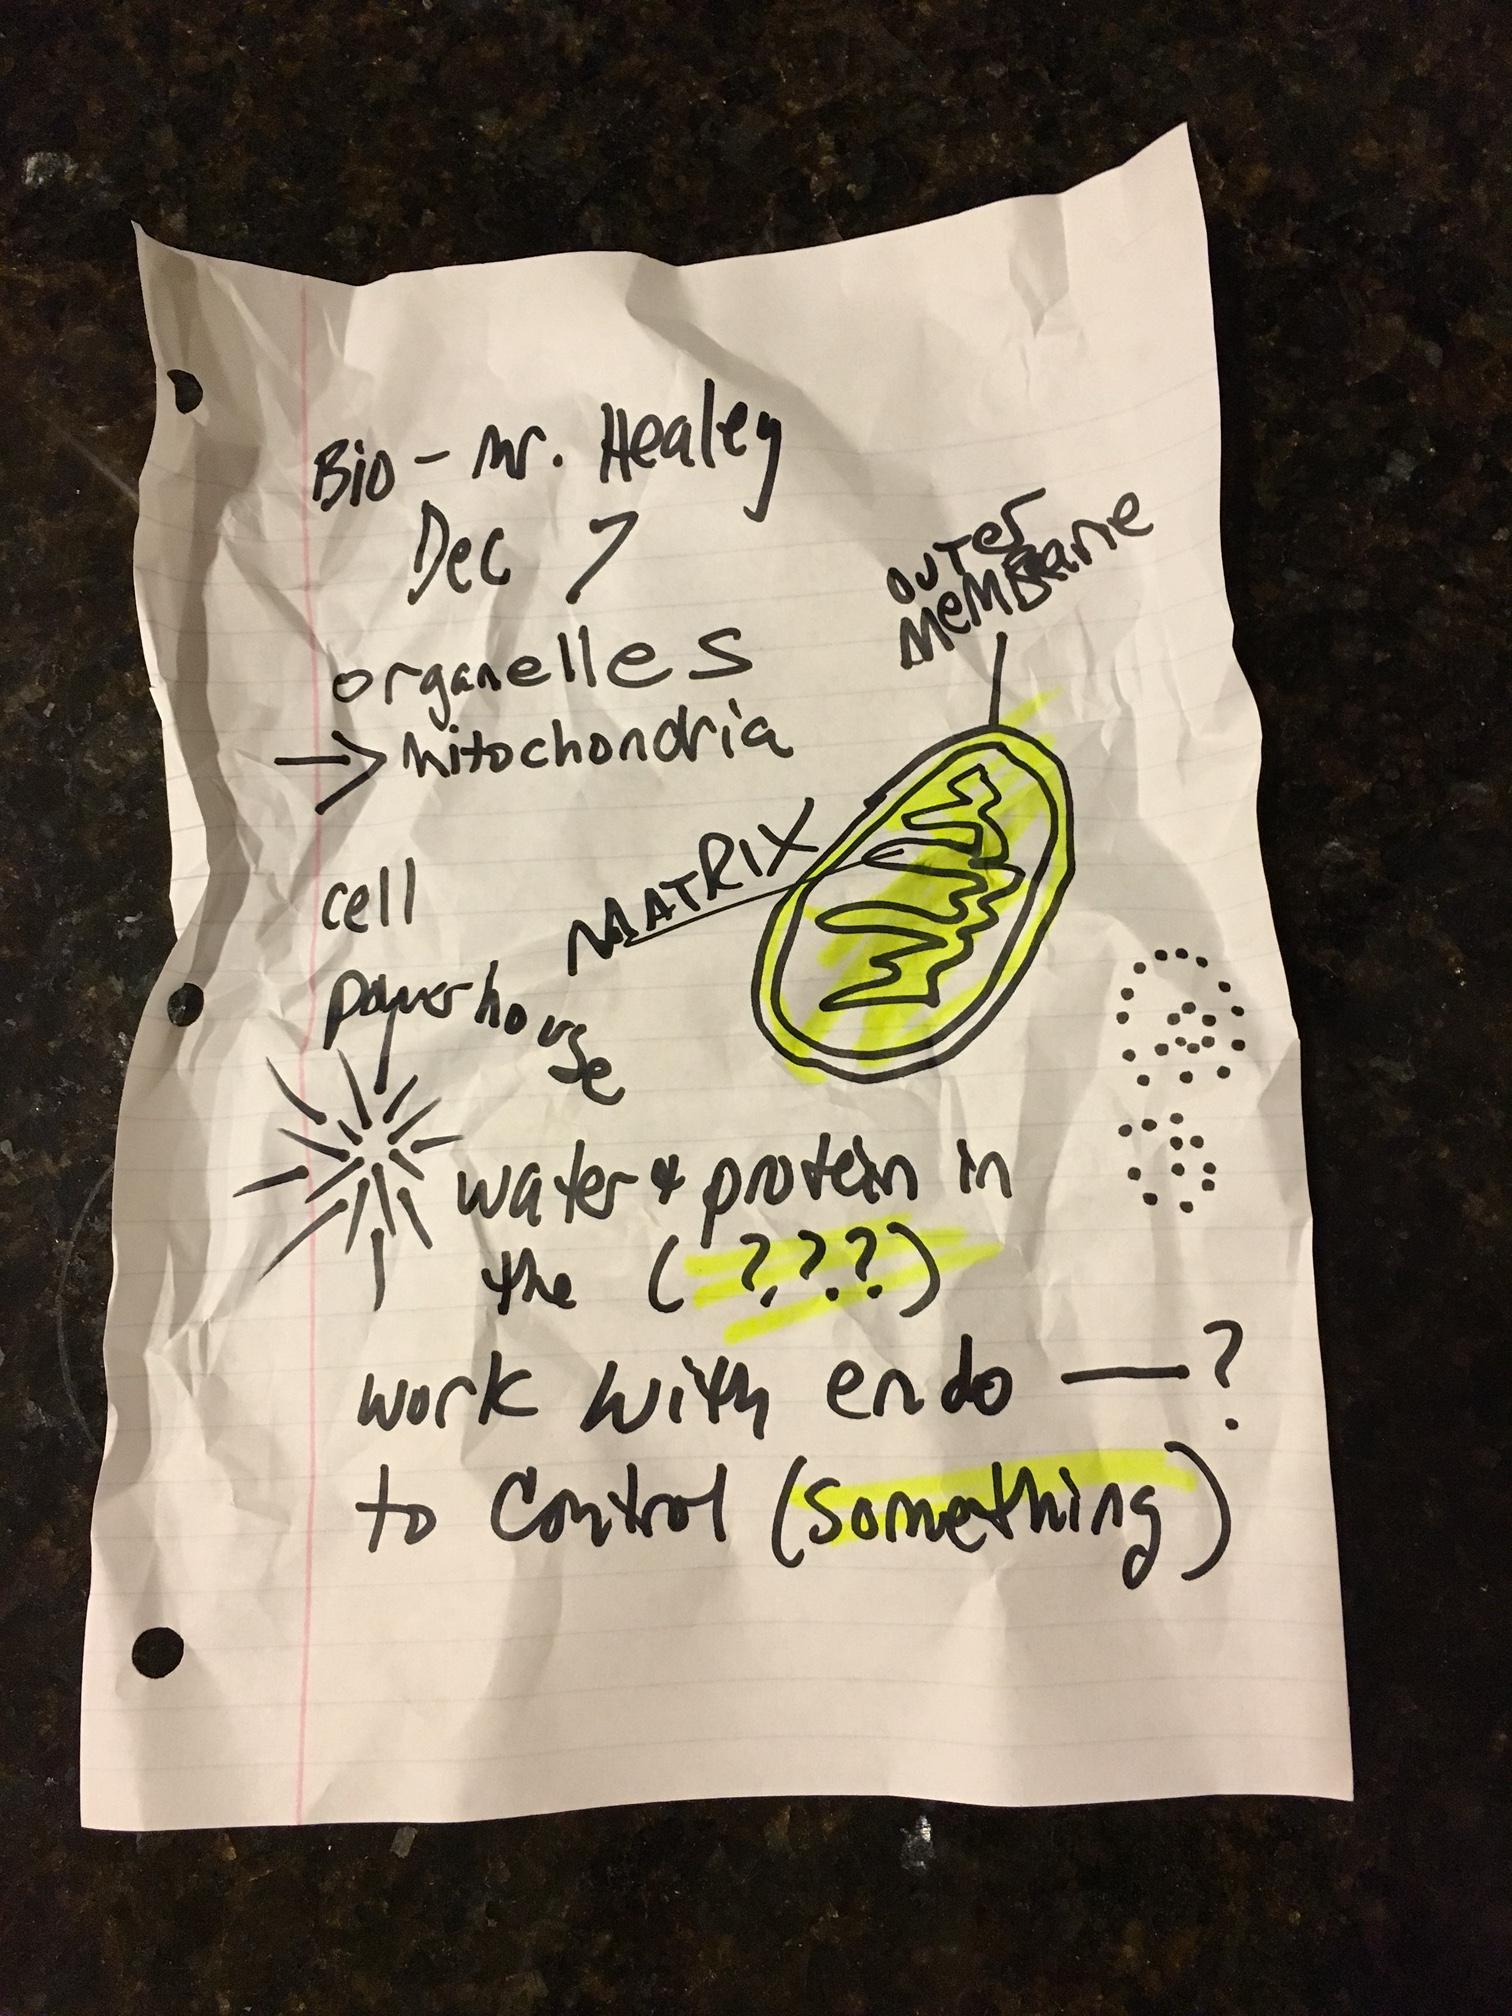 Bio - Mr. Healey
Dec 7
OUTER
MeMBRane
organelles
→ mitochondria
MATRIX
cell
powerhouse
water & protein in
the (???)
work with endo —?
to control (something)